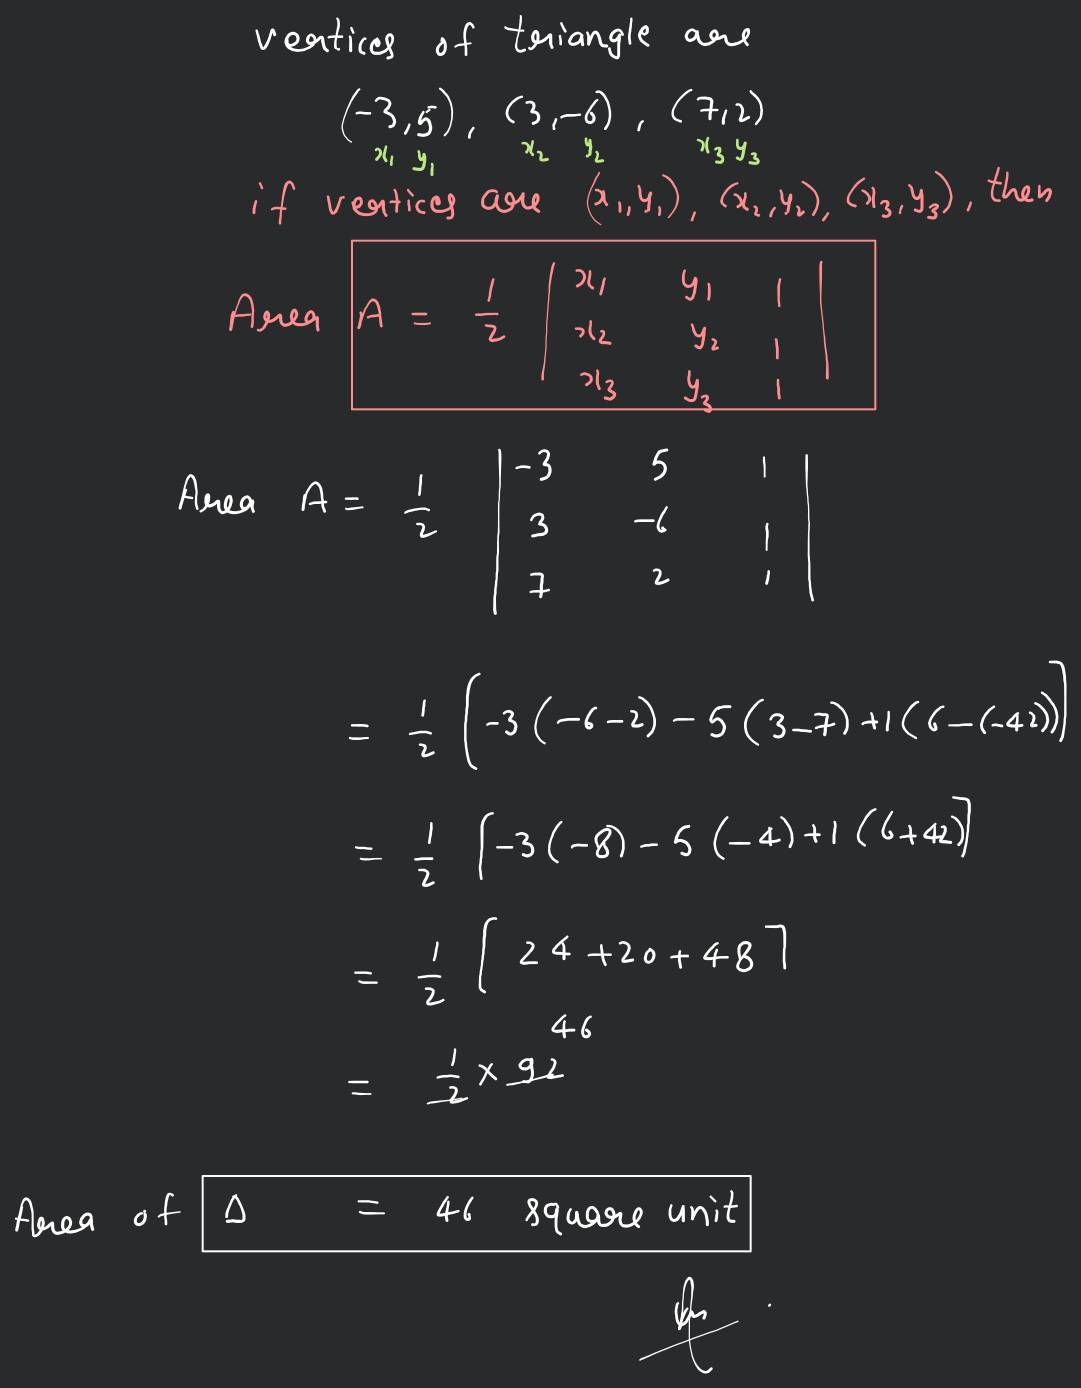 vertices of triangle are
(-3,5), (3,-6), (7,2)
x₁ y₁ x₂ y₂ x₃ y₃
if vertices are (x₁,y₁), (x₂,y₂), (x₃,y₃), then
Area A = 1/2 | x₁ y₁ 1
x₂ y₂ 1
x₃ y₃ 1 |
Area A = 1/2 | -3 5 1
3 -6 1
7 2 1 |
= 1/2 [-3(-6-2) - 5(3-7)+1(6-(-42))]
= 1/2 [-3(-8) - 5(-4)+1(6+42)]
= 1/2 [24+20+48]
46
= 1/2 × 92
Area of Δ = 46 square unit